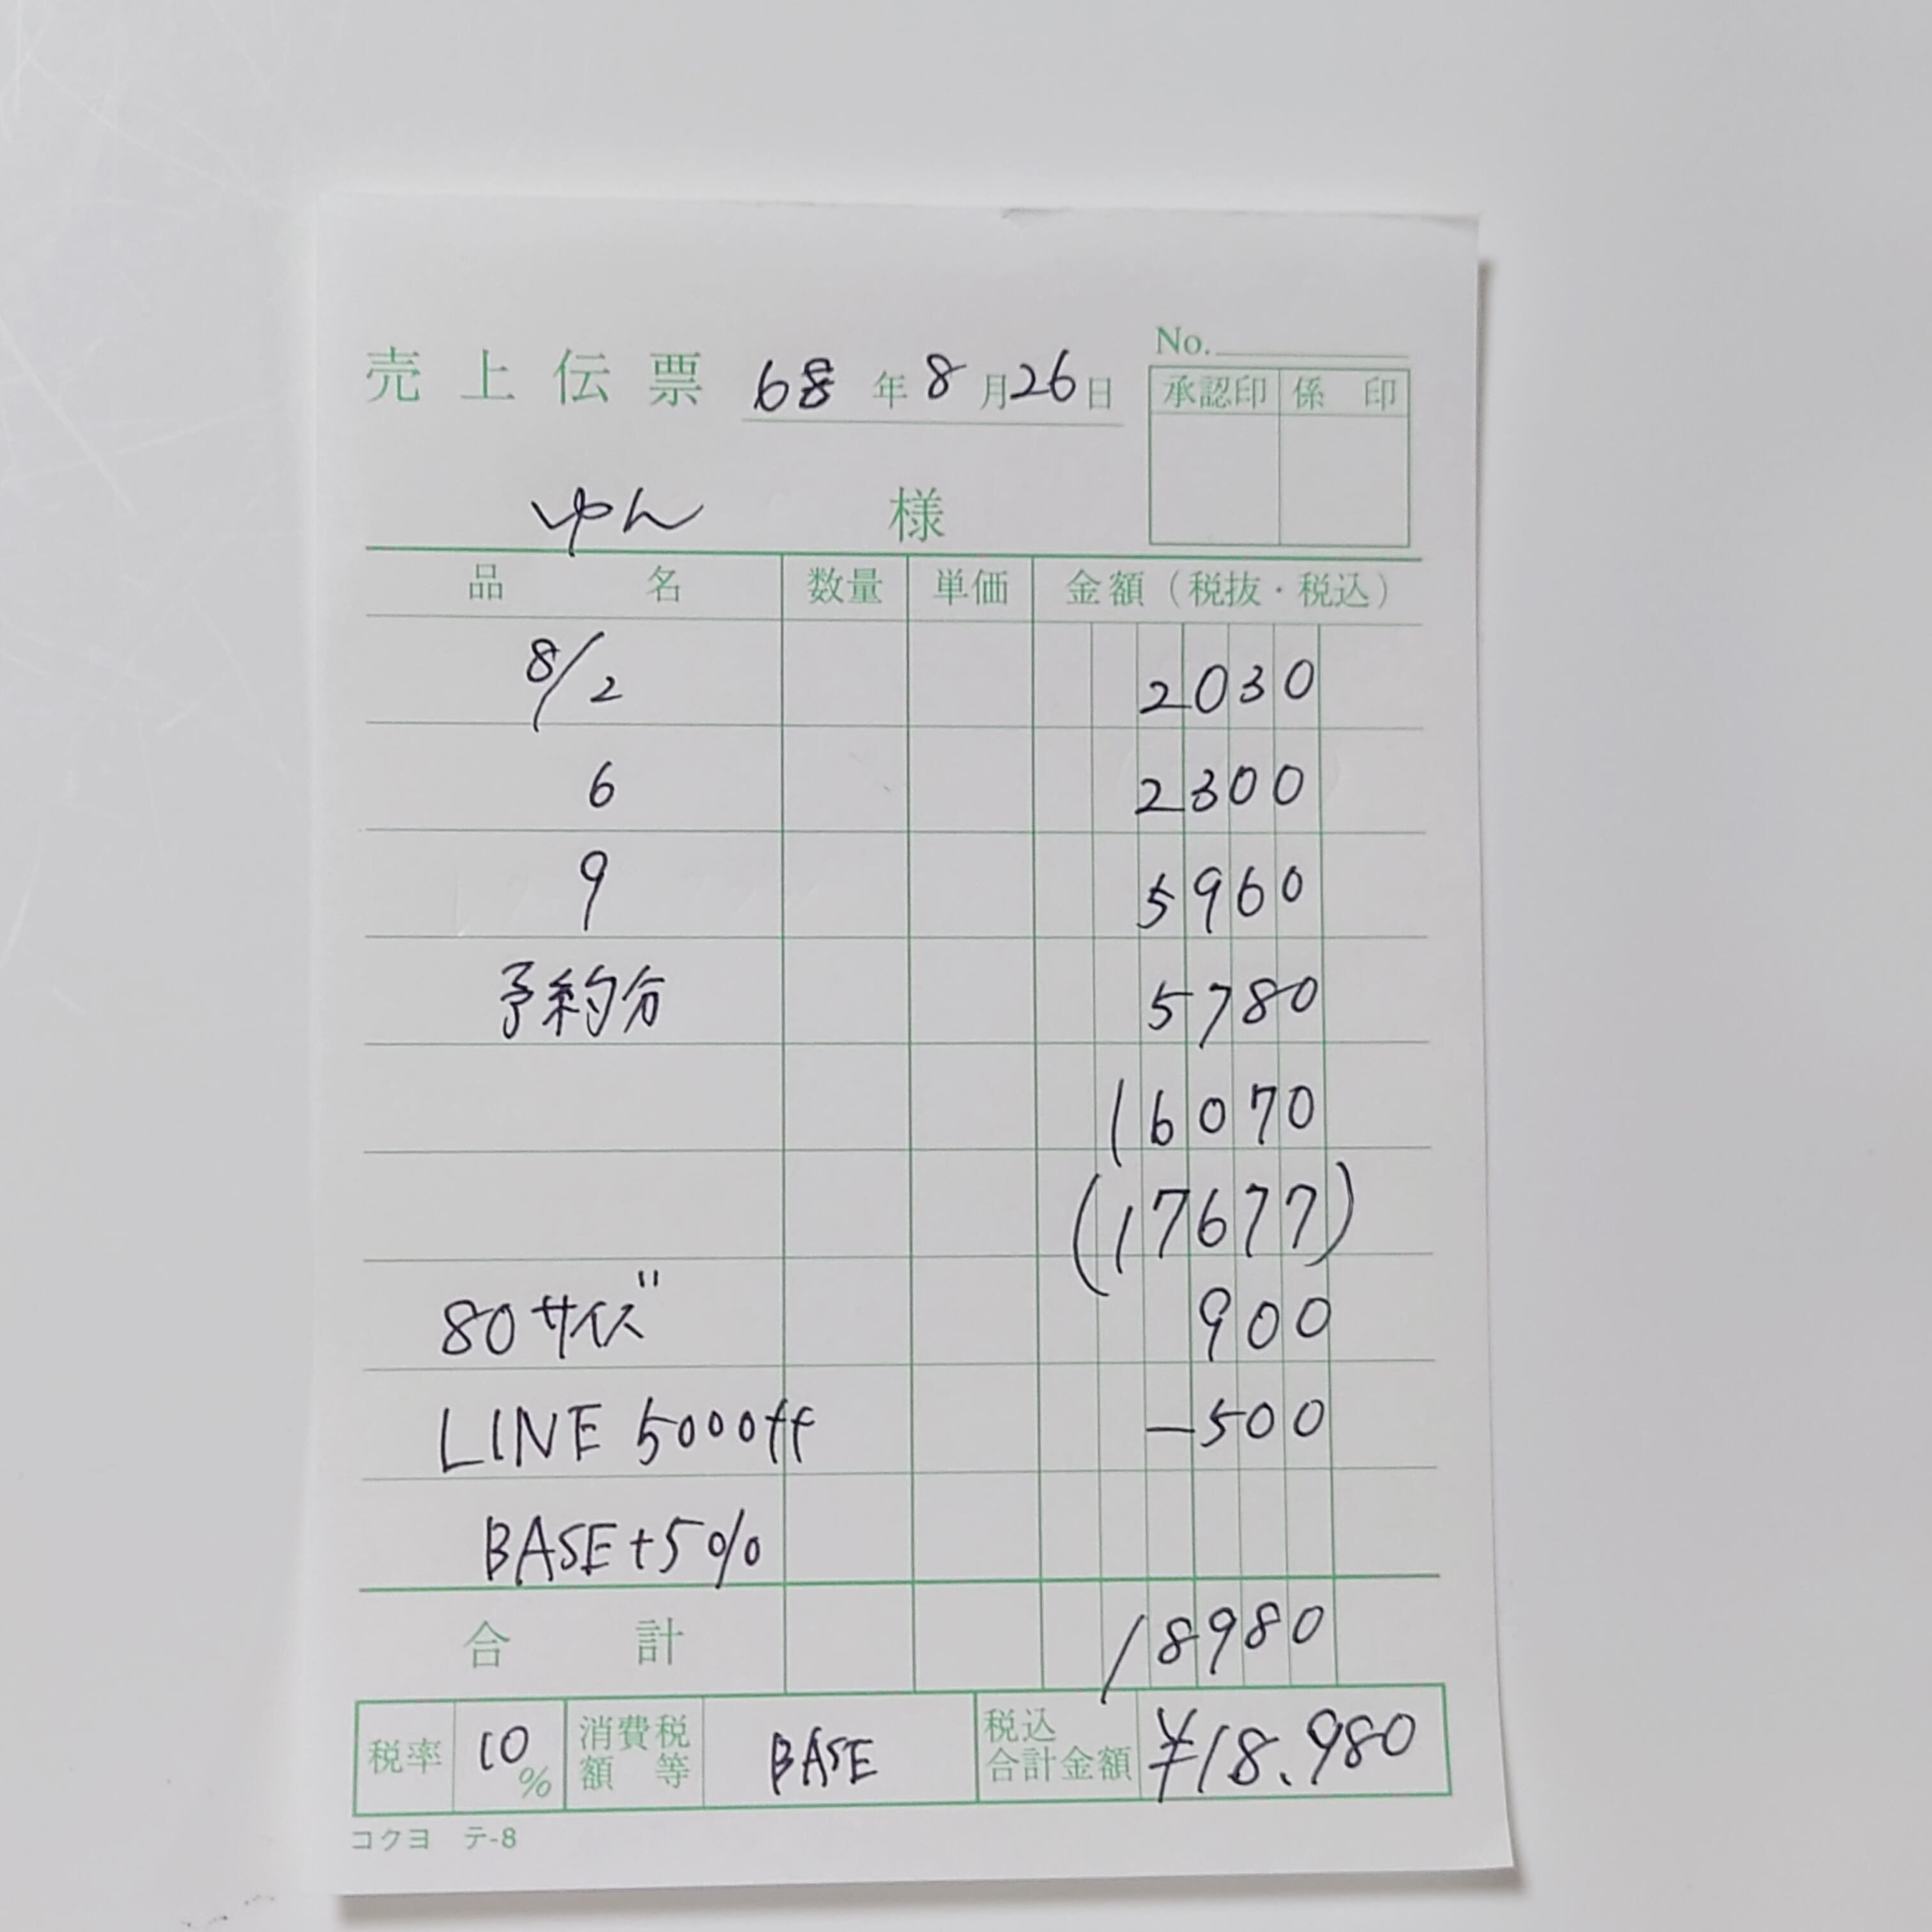 No.
売上伝票 68年8月26日
承認印 係印
ゆん 様
品名 数量 単価 金額（税抜・税込）
8/2 2030
6 2300
9 5960
予約分 5780
16070
(17677)
80サイズ 900
LINE 500off -500
BASE+5%
合計 18980
税率 10% 消費税額等 BASE 税込合計金額 ¥18.980
コクヨ テ-8